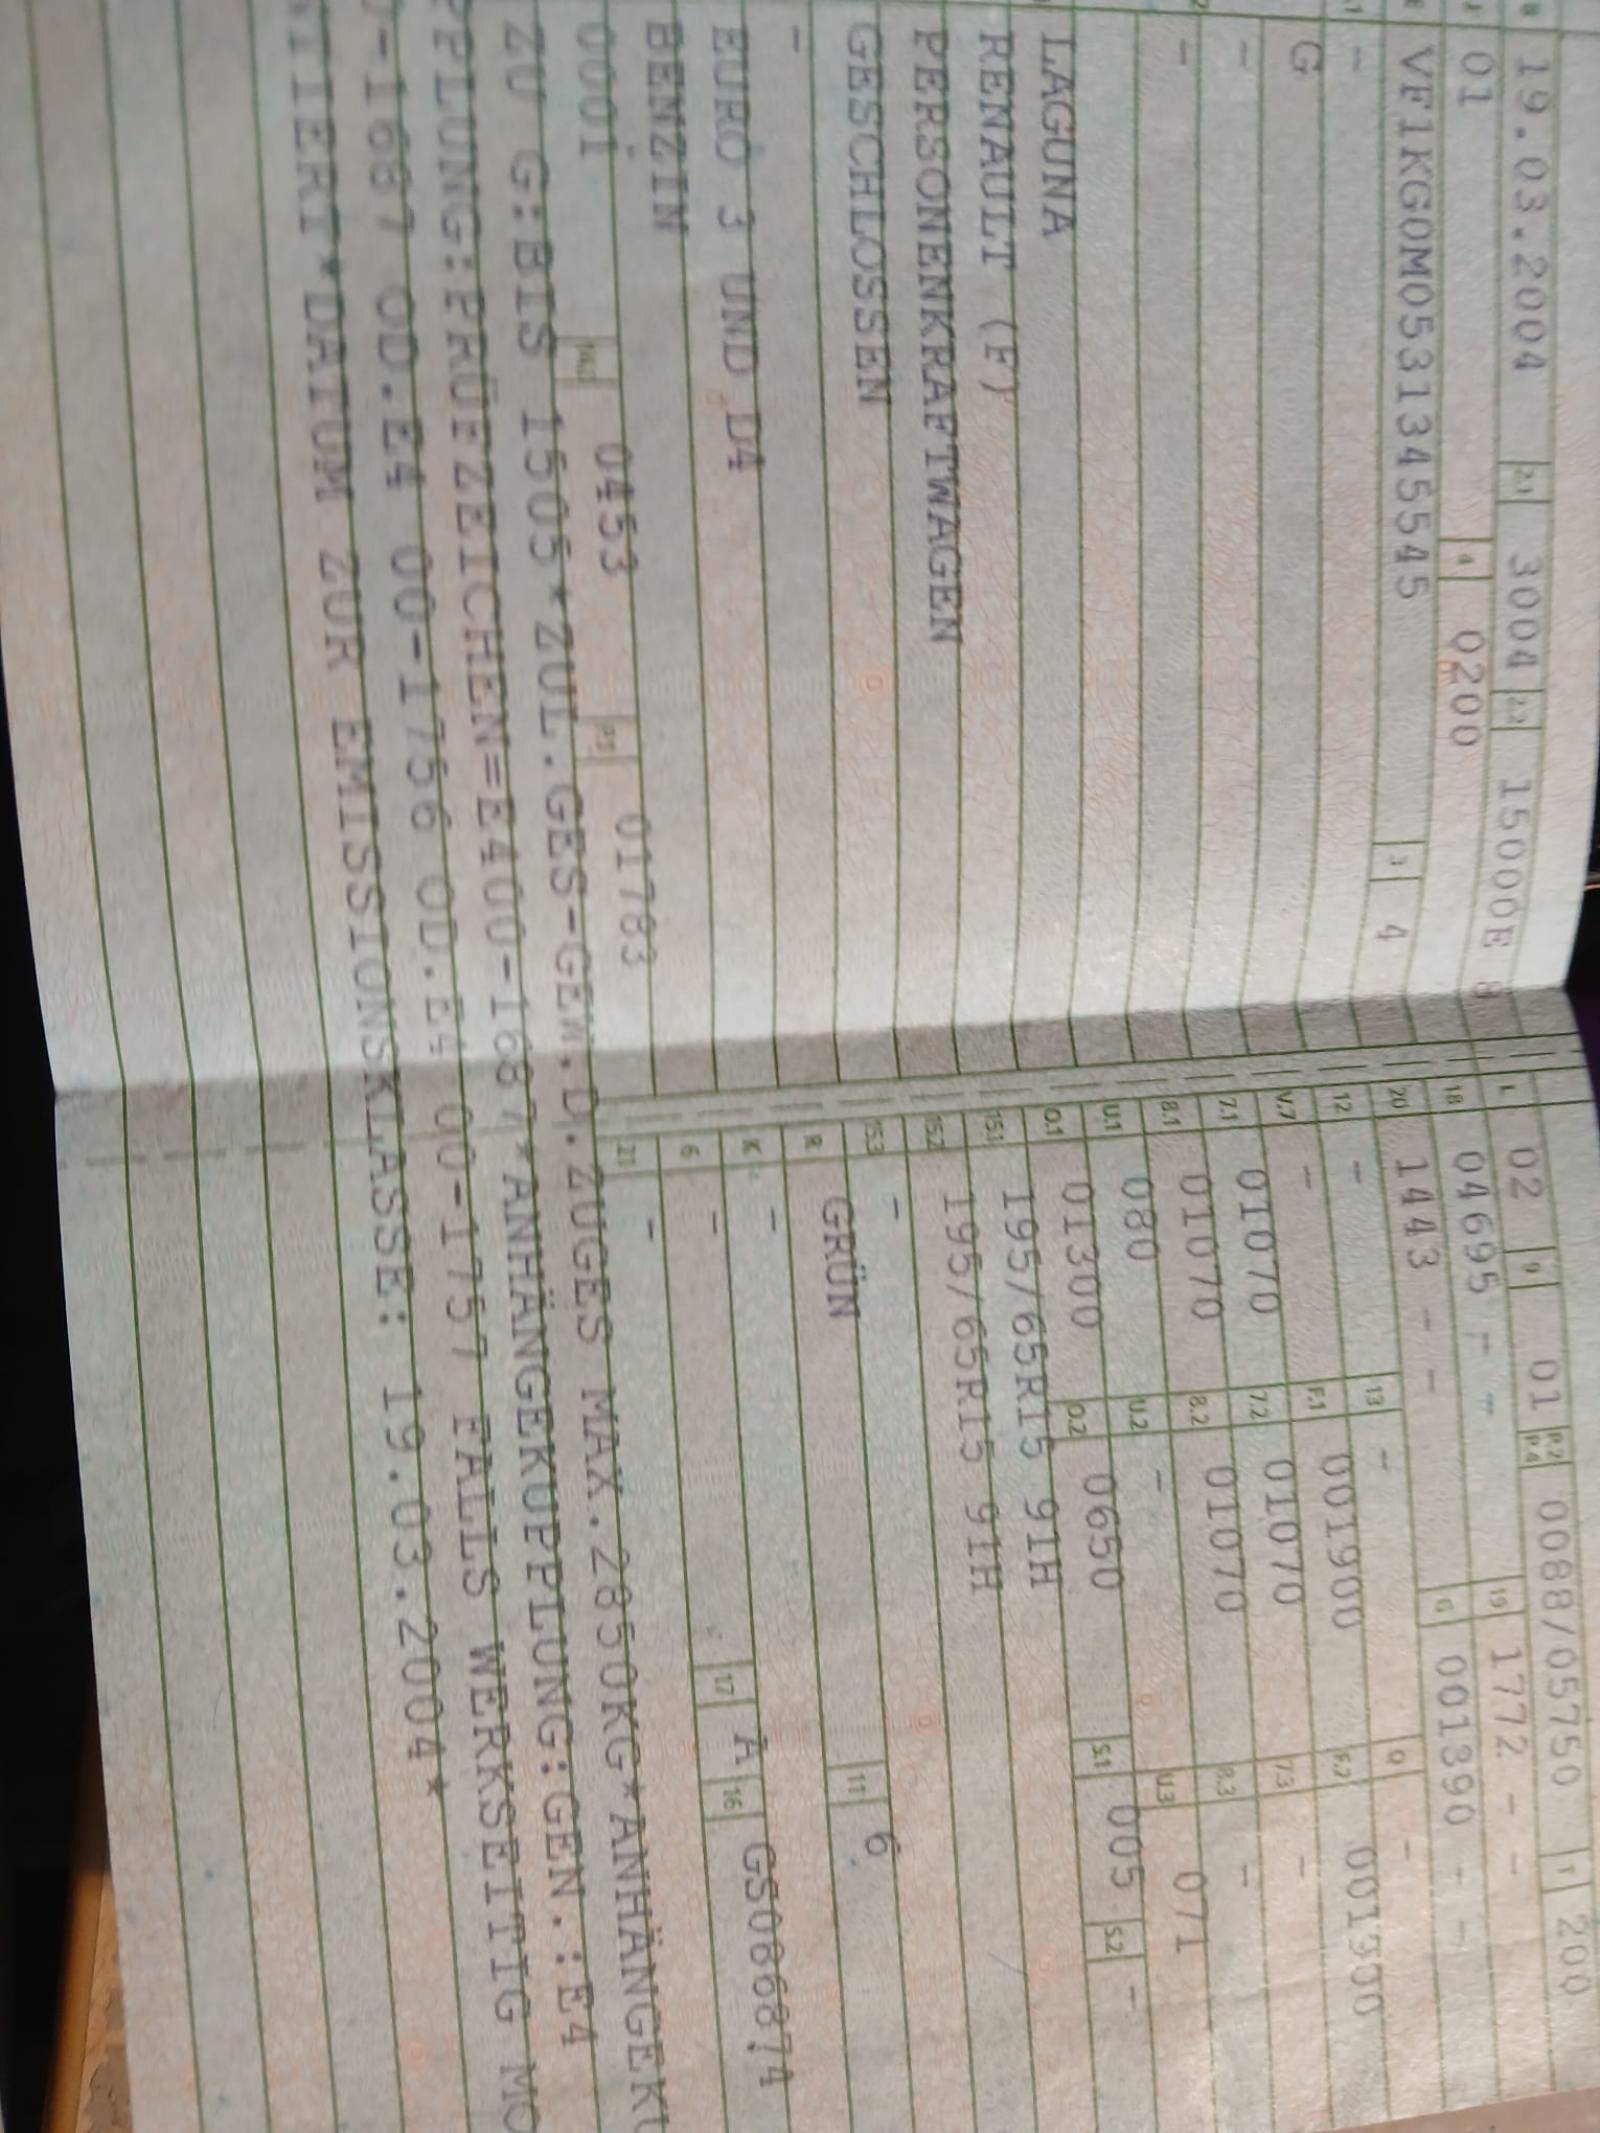 B 19.03.2004 2.1 3004 2.2 15000E 8
J 01 4 0200
E VF1KG0M0531345545 3 4
-
G
-
-
LAGUNA
RENAULT (F)
PERSONENKRAFTWAGEN
GESCHLOSSEN
-
EURO 3 UND D4
BENZIN
0001 0453 P.1 01783
L 02 9 01 P.2 P.4 0088/05750 T 200
18 04695 - - 19 1772 - -
20 1443 - - G 001390 - -
12 - 13 - Q -
V.7 - F.1 001900 F.2 001900
7.1 01070 7.2 01070 7.3 -
8.1 01070 8.2 01070 8.3 -
U.1 080 U.2 - U.3 071
O.1 01300 O.2 0650 S.1 005 S.2 -
15.1 195/65R15 91H
15.2 195/65R15 91H
15.3 -
R GRÜN 11 6
K -
6 - 17 A 16 GS0686874
21 -
ZU G:BIS 1505*ZUL.GES-GEW.D.ZUGES MAX.2850KG*ANHÄNGEKU
PPLUNG:PRÜFZEICHEN=E400-1687*ANHÄNGEKUPPLUNG:GEN.:E4
-1687 OD.E4 00-1756 OD.E4 00-1757 FALLS WERKSEITIG MO
NTIERT*DATUM ZUR EMISSIONSKLASSE: 19.03.2004*